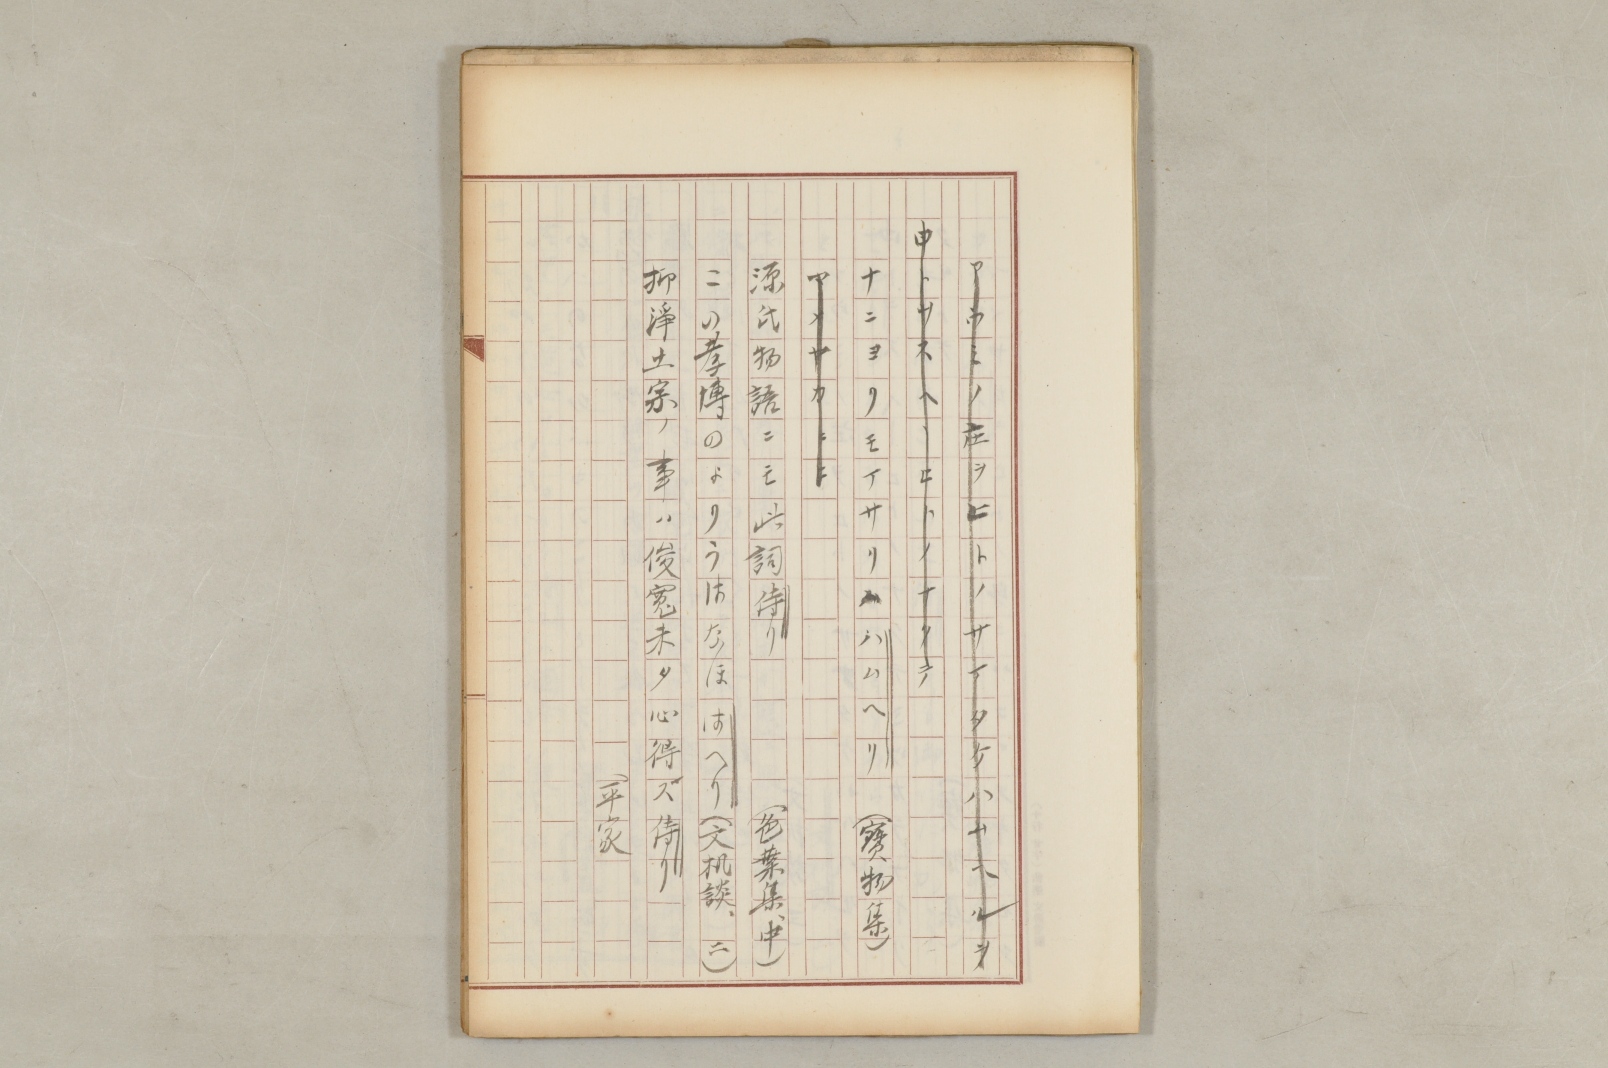 アウミノ在ヲヒトノサイタケハムヘルヲ
申トウスヘシヒトノナクテ
ナニヨリモイサリハムヘリ（寶物集）
アメサカニヒ
源氏物語ニモ此詞侍り（色葉集、中）
この孝博のよりうはなほはへり（文机談、二）
抑淨土宗ノ事ハ俊寬未タ心得ズ侍り
（平家